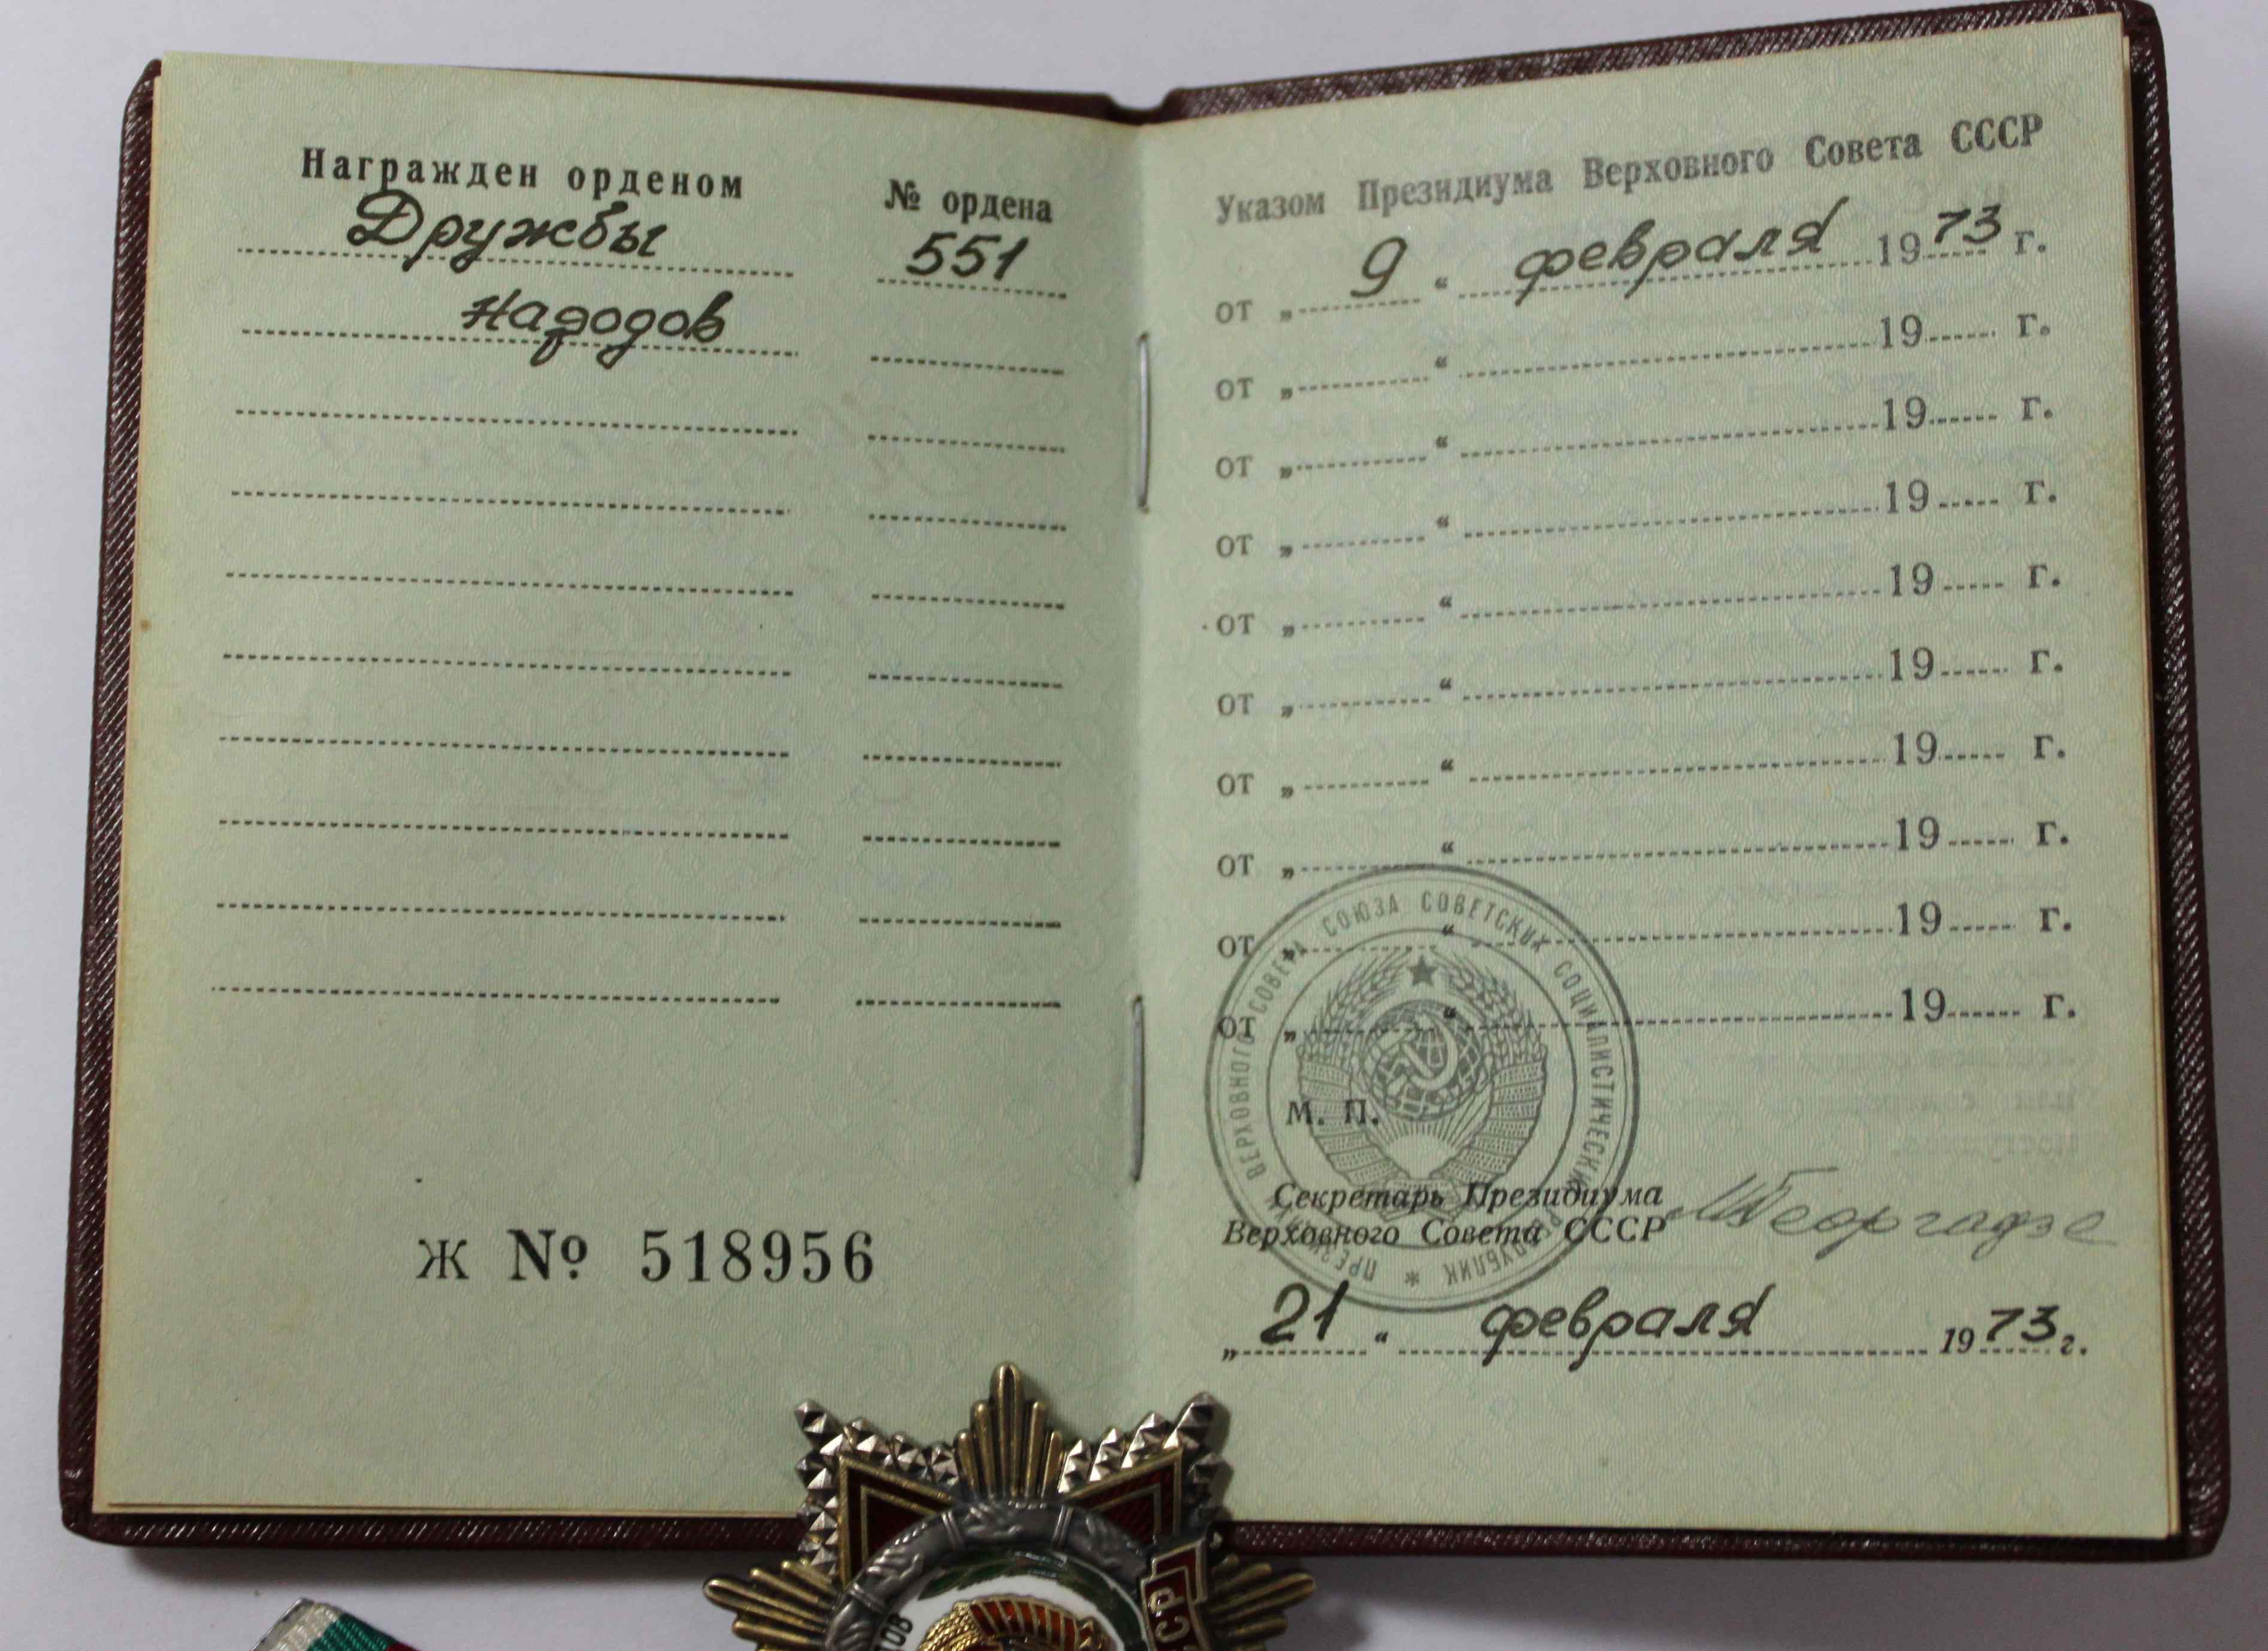 Награжден орденом
№ ордена
Дружбы
551
Народов
Ж № 518956
Указом Президиума Верховного Совета СССР
от „ 9 “ февраля 1973 г.
от „ “ 19 г.
от „ “ 19 г.
от „ “ 19 г.
от „ “ 19 г.
от „ “ 19 г.
от „ “ 19 г.
от „ “ 19 г.
от „ “ 19 г.
от „ “ 19 г.
ВЕРХОВНОГО СОВЕТА СОЮЗА СОВЕТСКИХ СОЦИАЛИСТИЧЕСКИХ
М. П.
Секретарь Президиума
Верховного Совета СССР
МГеоргадзе
„ 21 “ февраля 1973 г.